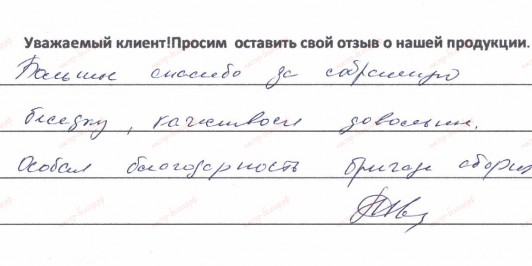 Уважаемый клиент!Просим оставить свой отзыв о нашей продукции.
Большое спасибо за собранную
беседку, качеством довольны.
Особая благодарность бригаде